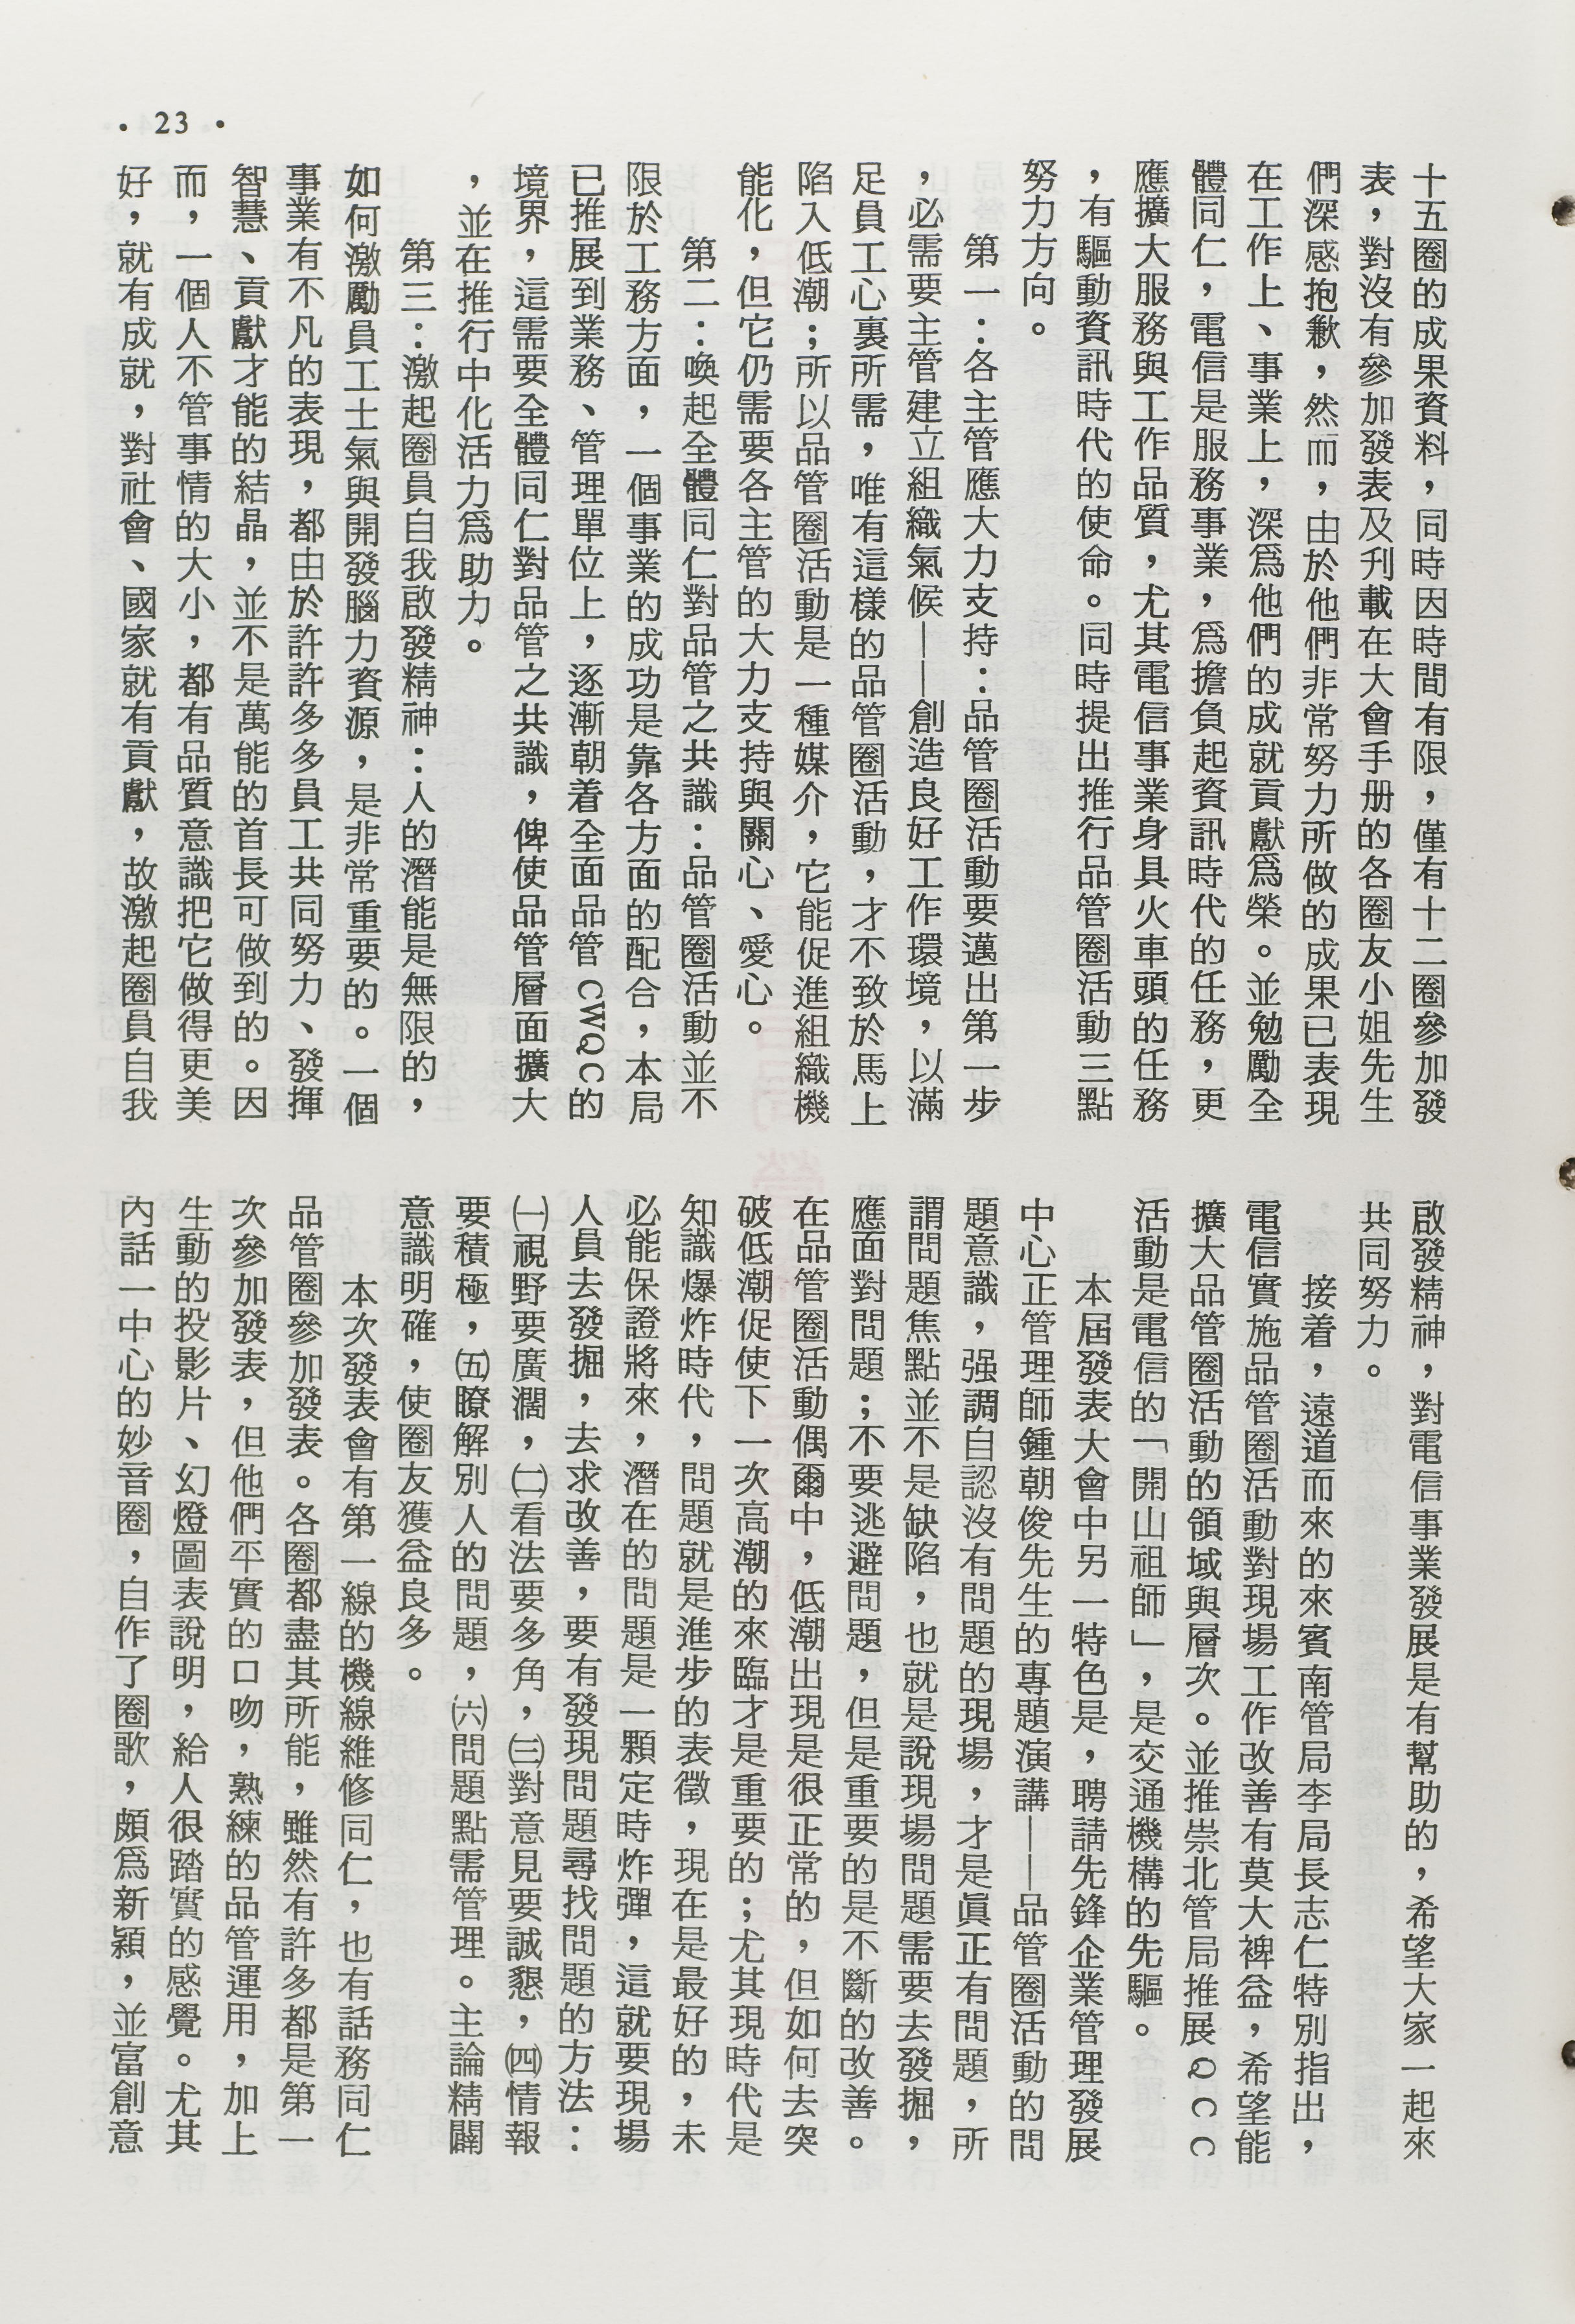 · 23 ·
十五圈的成果資料，同時因時間有限，僅有十二圈參加發
表，對沒有參加發表及刋載在大會手册的各圈友小姐先生
們深感抱歉，然而，由於他們非常努力所做的成果已表現
在工作上、事業上，深爲他們的成就貢獻爲榮。並勉勵全
體同仁，電信是服務事業，爲擔負起資訊時代的任務，更
應擴大服務與工作品質，尤其電信事業身具火車頭的任務
，有驅動資訊時代的使命。同時提出推行品管圈活動三點
努力方向。
第一：各主管應大力支持：品管圈活動要邁出第一步
，必需要主管建立組織氣候——創造良好工作環境，以滿
足員工心裏所需，唯有這樣的品管圈活動，才不致於馬上
陷入低潮；所以品管圈活動是一種媒介，它能促進組織機
能化，但它仍需要各主管的大力支持與關心、愛心。
第二：喚起全體同仁對品管之共識：品管圈活動並不
限於工務方面，一個事業的成功是靠各方面的配合，本局
已推展到業務、管理單位上，逐漸朝着全面品管CWQC的
境界，這需要全體同仁對品管之共識，俾使品管層面擴大
，並在推行中化活力爲助力。
第三：激起圈員自我啟發精神：人的潛能是無限的，
如何激勵員工士氣與開發腦力資源，是非常重要的。一個
事業有不凡的表現，都由於許許多多員工共同努力、發揮
智慧、貢獻才能的結晶，並不是萬能的首長可做到的。因
而，一個人不管事情的大小，都有品質意識把它做得更美
好，就有成就，對社會、國家就有貢獻，故激起圈員自我
啟發精神，對電信事業發展是有幫助的，希望大家一起來
共同努力。
接着，遠道而來的來賓南管局李局長志仁特別指出，
電信實施品管圈活動對現場工作改善有莫大裨益，希望能
擴大品管圈活動的領域與層次。並推崇北管局推展QCC
活動是電信的「開山祖師」，是交通機構的先驅。
本屆發表大會中另一特色是，聘請先鋒企業管理發展
中心正管理師鍾朝俊先生的專題演講——品管圈活動的問
題意識，强調自認沒有問題的現場，才是眞正有問題，所
謂問題焦點並不是缺陷，也就是說現場問題需要去發掘，
應面對問題；不要逃避問題，但是重要的是不斷的改善。
在品管圈活動偶爾中，低潮出現是很正常的，但如何去突
破低潮促使下一次高潮的來臨才是重要的；尤其現時代是
知識爆炸時代，問題就是進步的表徵，現在是最好的，未
必能保證將來，潛在的問題是一顆定時炸彈，這就要現場
人員去發掘，去求改善，要有發現問題尋找問題的方法：
㈠視野要廣濶，㈡看法要多角，㈢對意見要誠懇，㈣情報
要積極，㈤瞭解別人的問題，㈥問題點需管理。主論精闢
意識明確，使圈友獲益良多。
本次發表會有第一線的機線維修同仁，也有話務同仁
品管圈參加發表。各圈都盡其所能，雖然有許多都是第一
次參加發表，但他們平實的口吻，熟練的品管運用，加上
生動的投影片、幻燈圖表說明，給人很踏實的感覺。尤其
內話一中心的妙音圈，自作了圈歌，頗爲新穎，並富創意